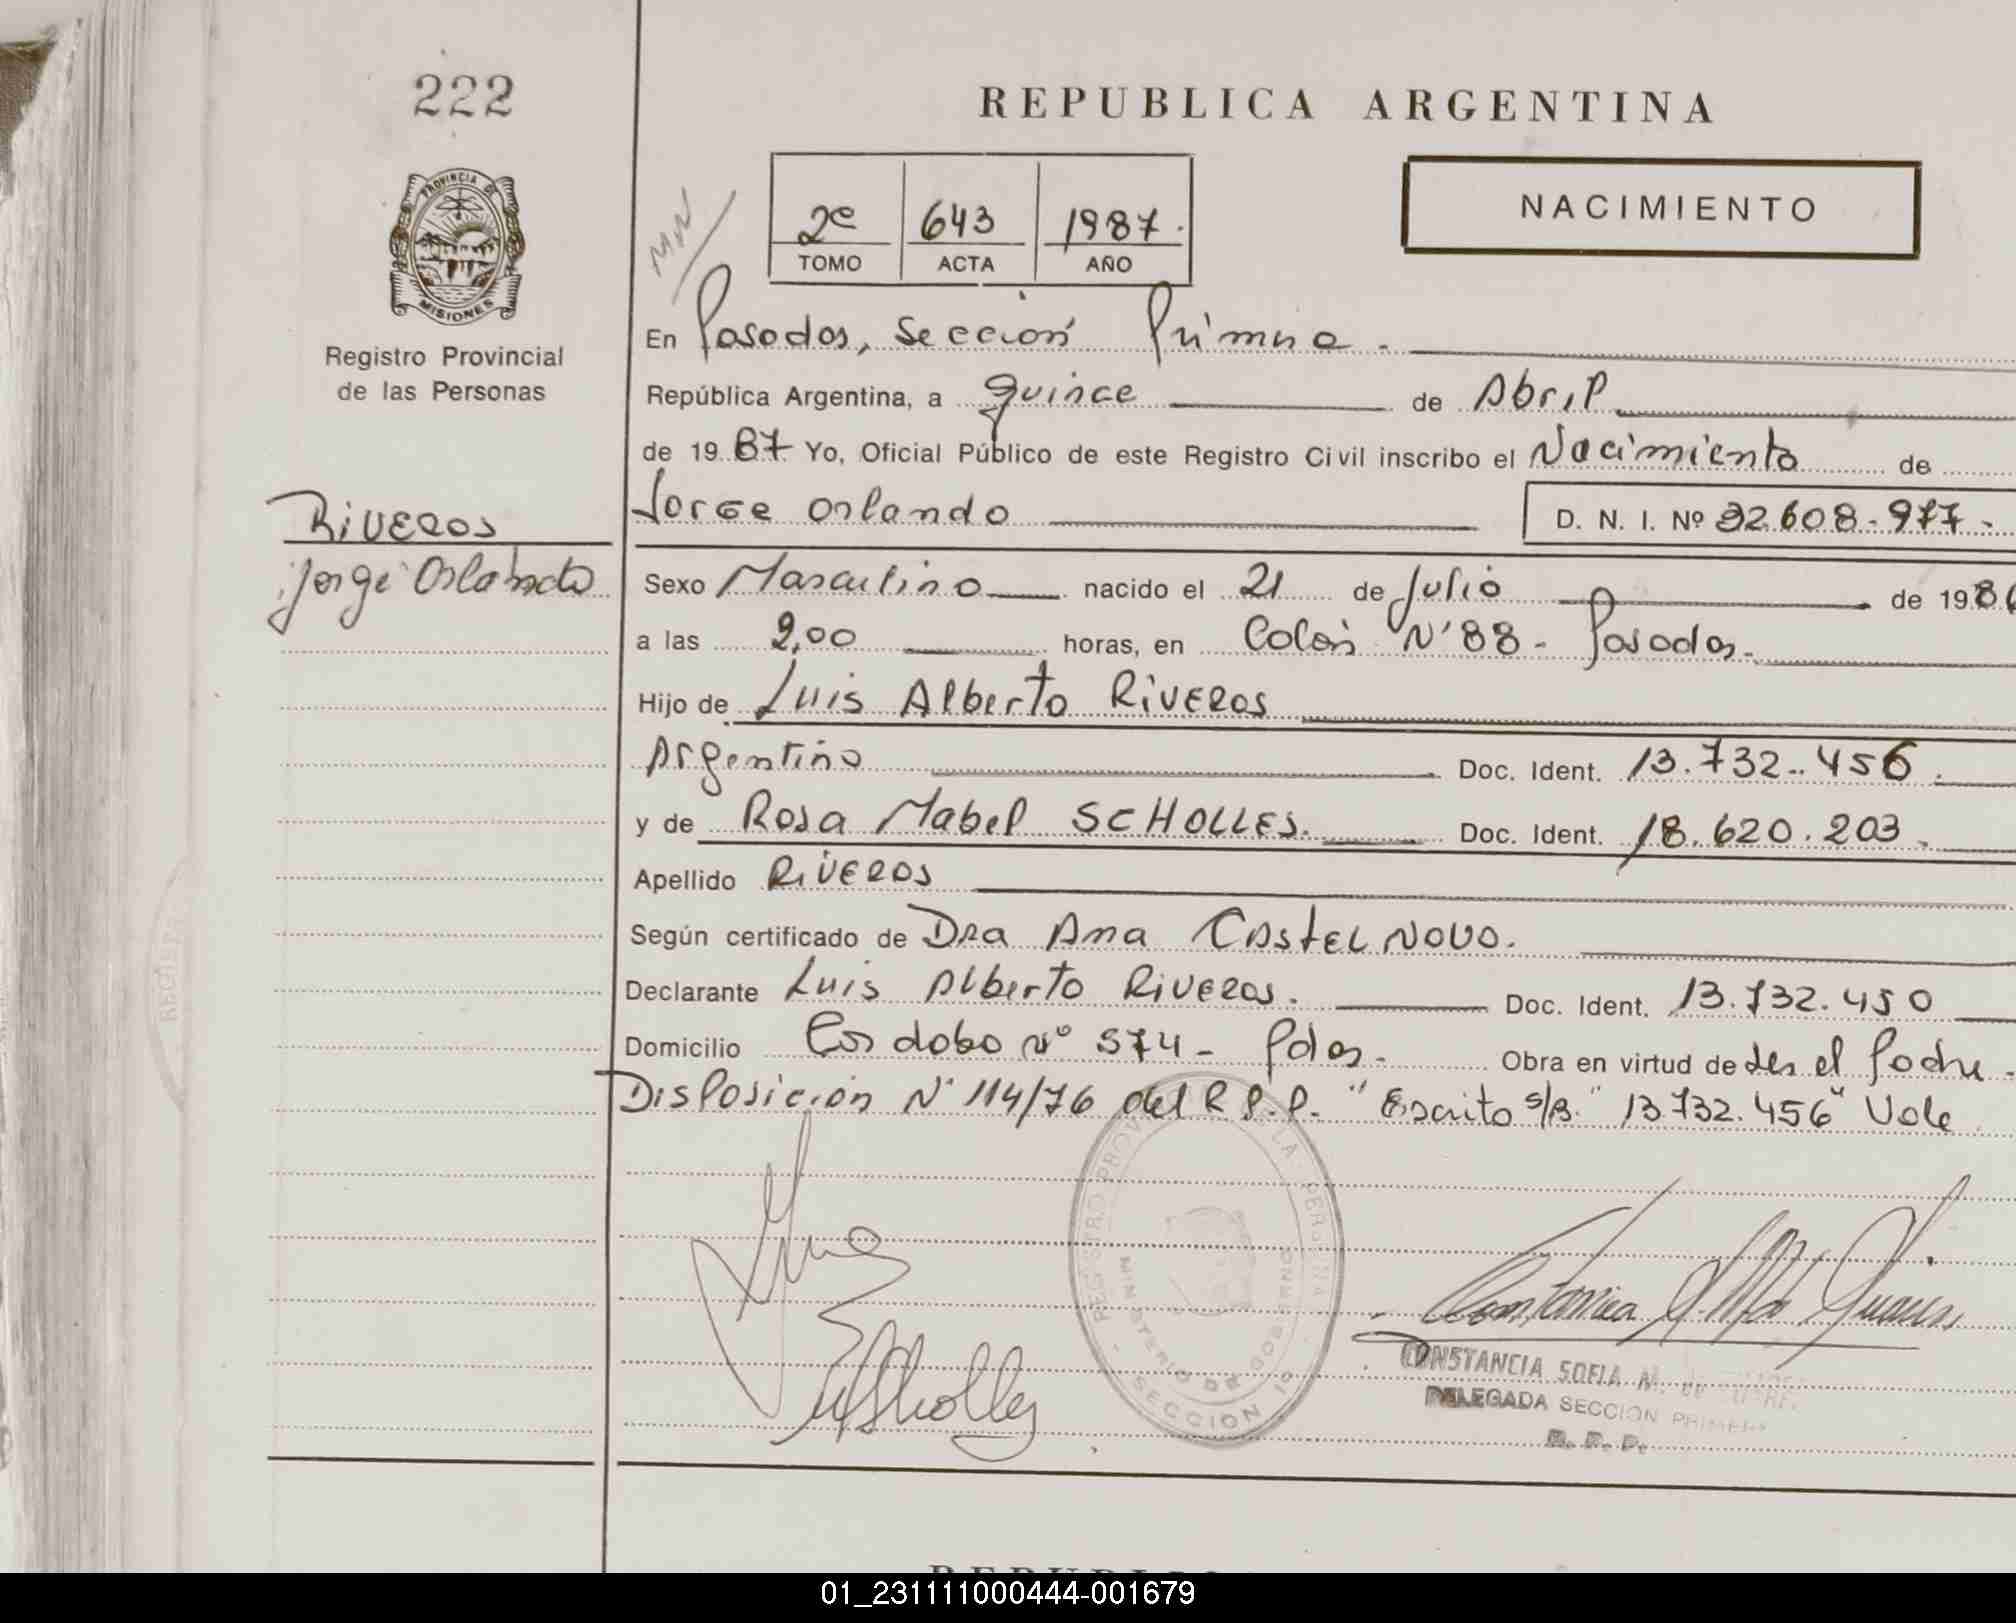 222
REPUBLICA ARGENTINA
PROVINCIA DE
MISIONES
Registro Provincial
de las Personas
2e 643 1987.
TOMO ACTA AÑO
NACIMIENTO
En Posadas, Sección Primera.
República Argentina, a quince de Abril
de 1987 Yo, Oficial Público de este Registro Civil inscribo el Nacimiento de
Jorge Orlando D. N. I. Nº 32.608.977-
RIVEROS
Jorge Orlando
Sexo Masculino nacido el 21 de Julio de 198
a las 9,00 horas, en Colón Nº 88 - Posadas.
Hijo de Luis Alberto RIVEROS
Argentino Doc. Ident. 13.732.456.
y de Rosa Mabel SCHOLLES. Doc. Ident. 18.620.203.
Apellido RIVEROS
Según certificado de Dra Ana CASTELNOVO.
Declarante Luis Alberto Riveros. Doc. Ident. 13.732.450
Domicilio Cordoba Nº 574 - Pdas. Obra en virtud de ser el Padre.
Disposición Nº 114/76 del R.P.P. "Escrito s/B." 13.732.456" Vale
MINISTERIO DE GOBIERNO
SECCION 1º
CONSTANCIA SOFIA M. de
DELEGADA SECCION PRIMERA
R. P. P.
01_231111000444-001679